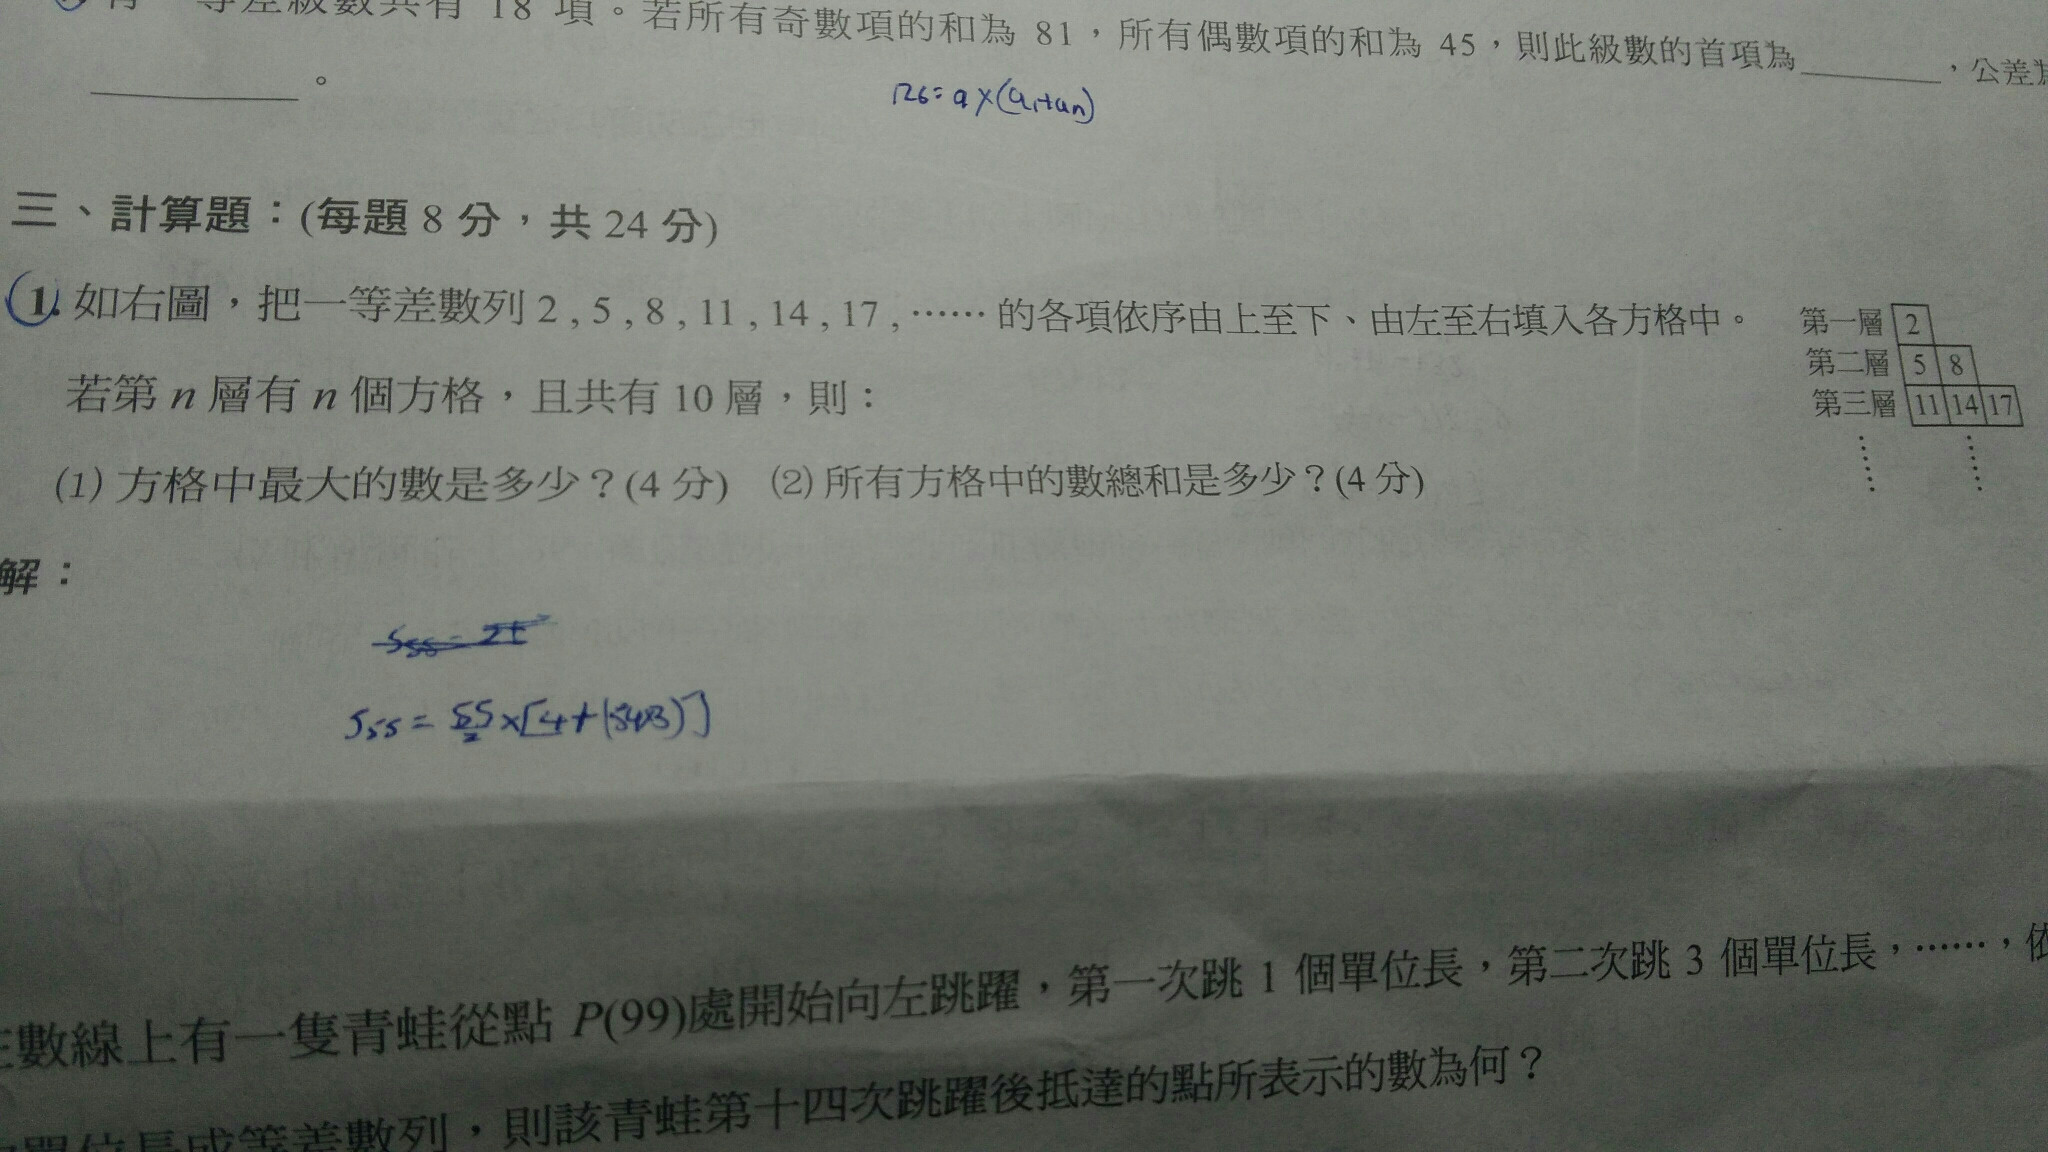 等差級數共有 18 項。若所有奇數項的和為 81，所有偶數項的和為 45，則此級數的首項為________，公差
________。
126=9×(a₁+aₙ)
三、計算題：(每題 8 分，共 24 分)
1. 如右圖，把一等差數列 2 , 5 , 8 , 11 , 14 , 17 , …… 的各項依序由上至下、由左至右填入各方格中。
若第 n 層有 n 個方格，且共有 10 層，則：
(1) 方格中最大的數是多少？(4 分) (2) 所有方格中的數總和是多少？(4 分)
第一層 2
第二層 5 8
第三層 11 14 17
解：
S₅₅ = 55/2 ×[4+(54×3)]
數線上有一隻青蛙從點 P(99)處開始向左跳躍，第一次跳 1 個單位長，第二次跳 3 個單位長，……，依
單位長成等差數列，則該青蛙第十四次跳躍後抵達的點所表示的數為何？